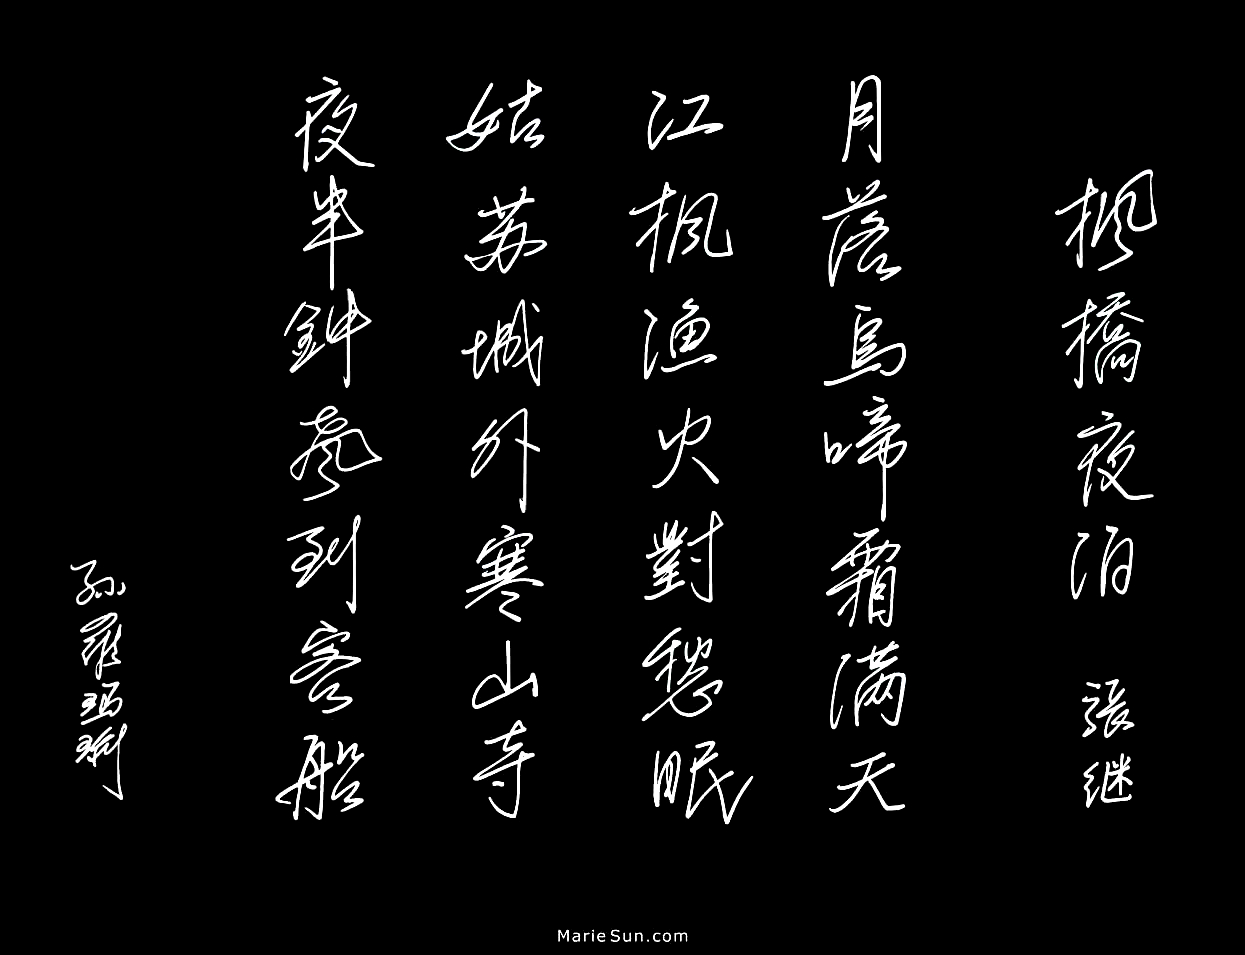 楓橋夜泊 張继
月落烏啼霜满天
江楓渔火對愁眠
姑苏城外寒山寺
夜半鈡声到客船
孙羅玛琍
MarieSun.com